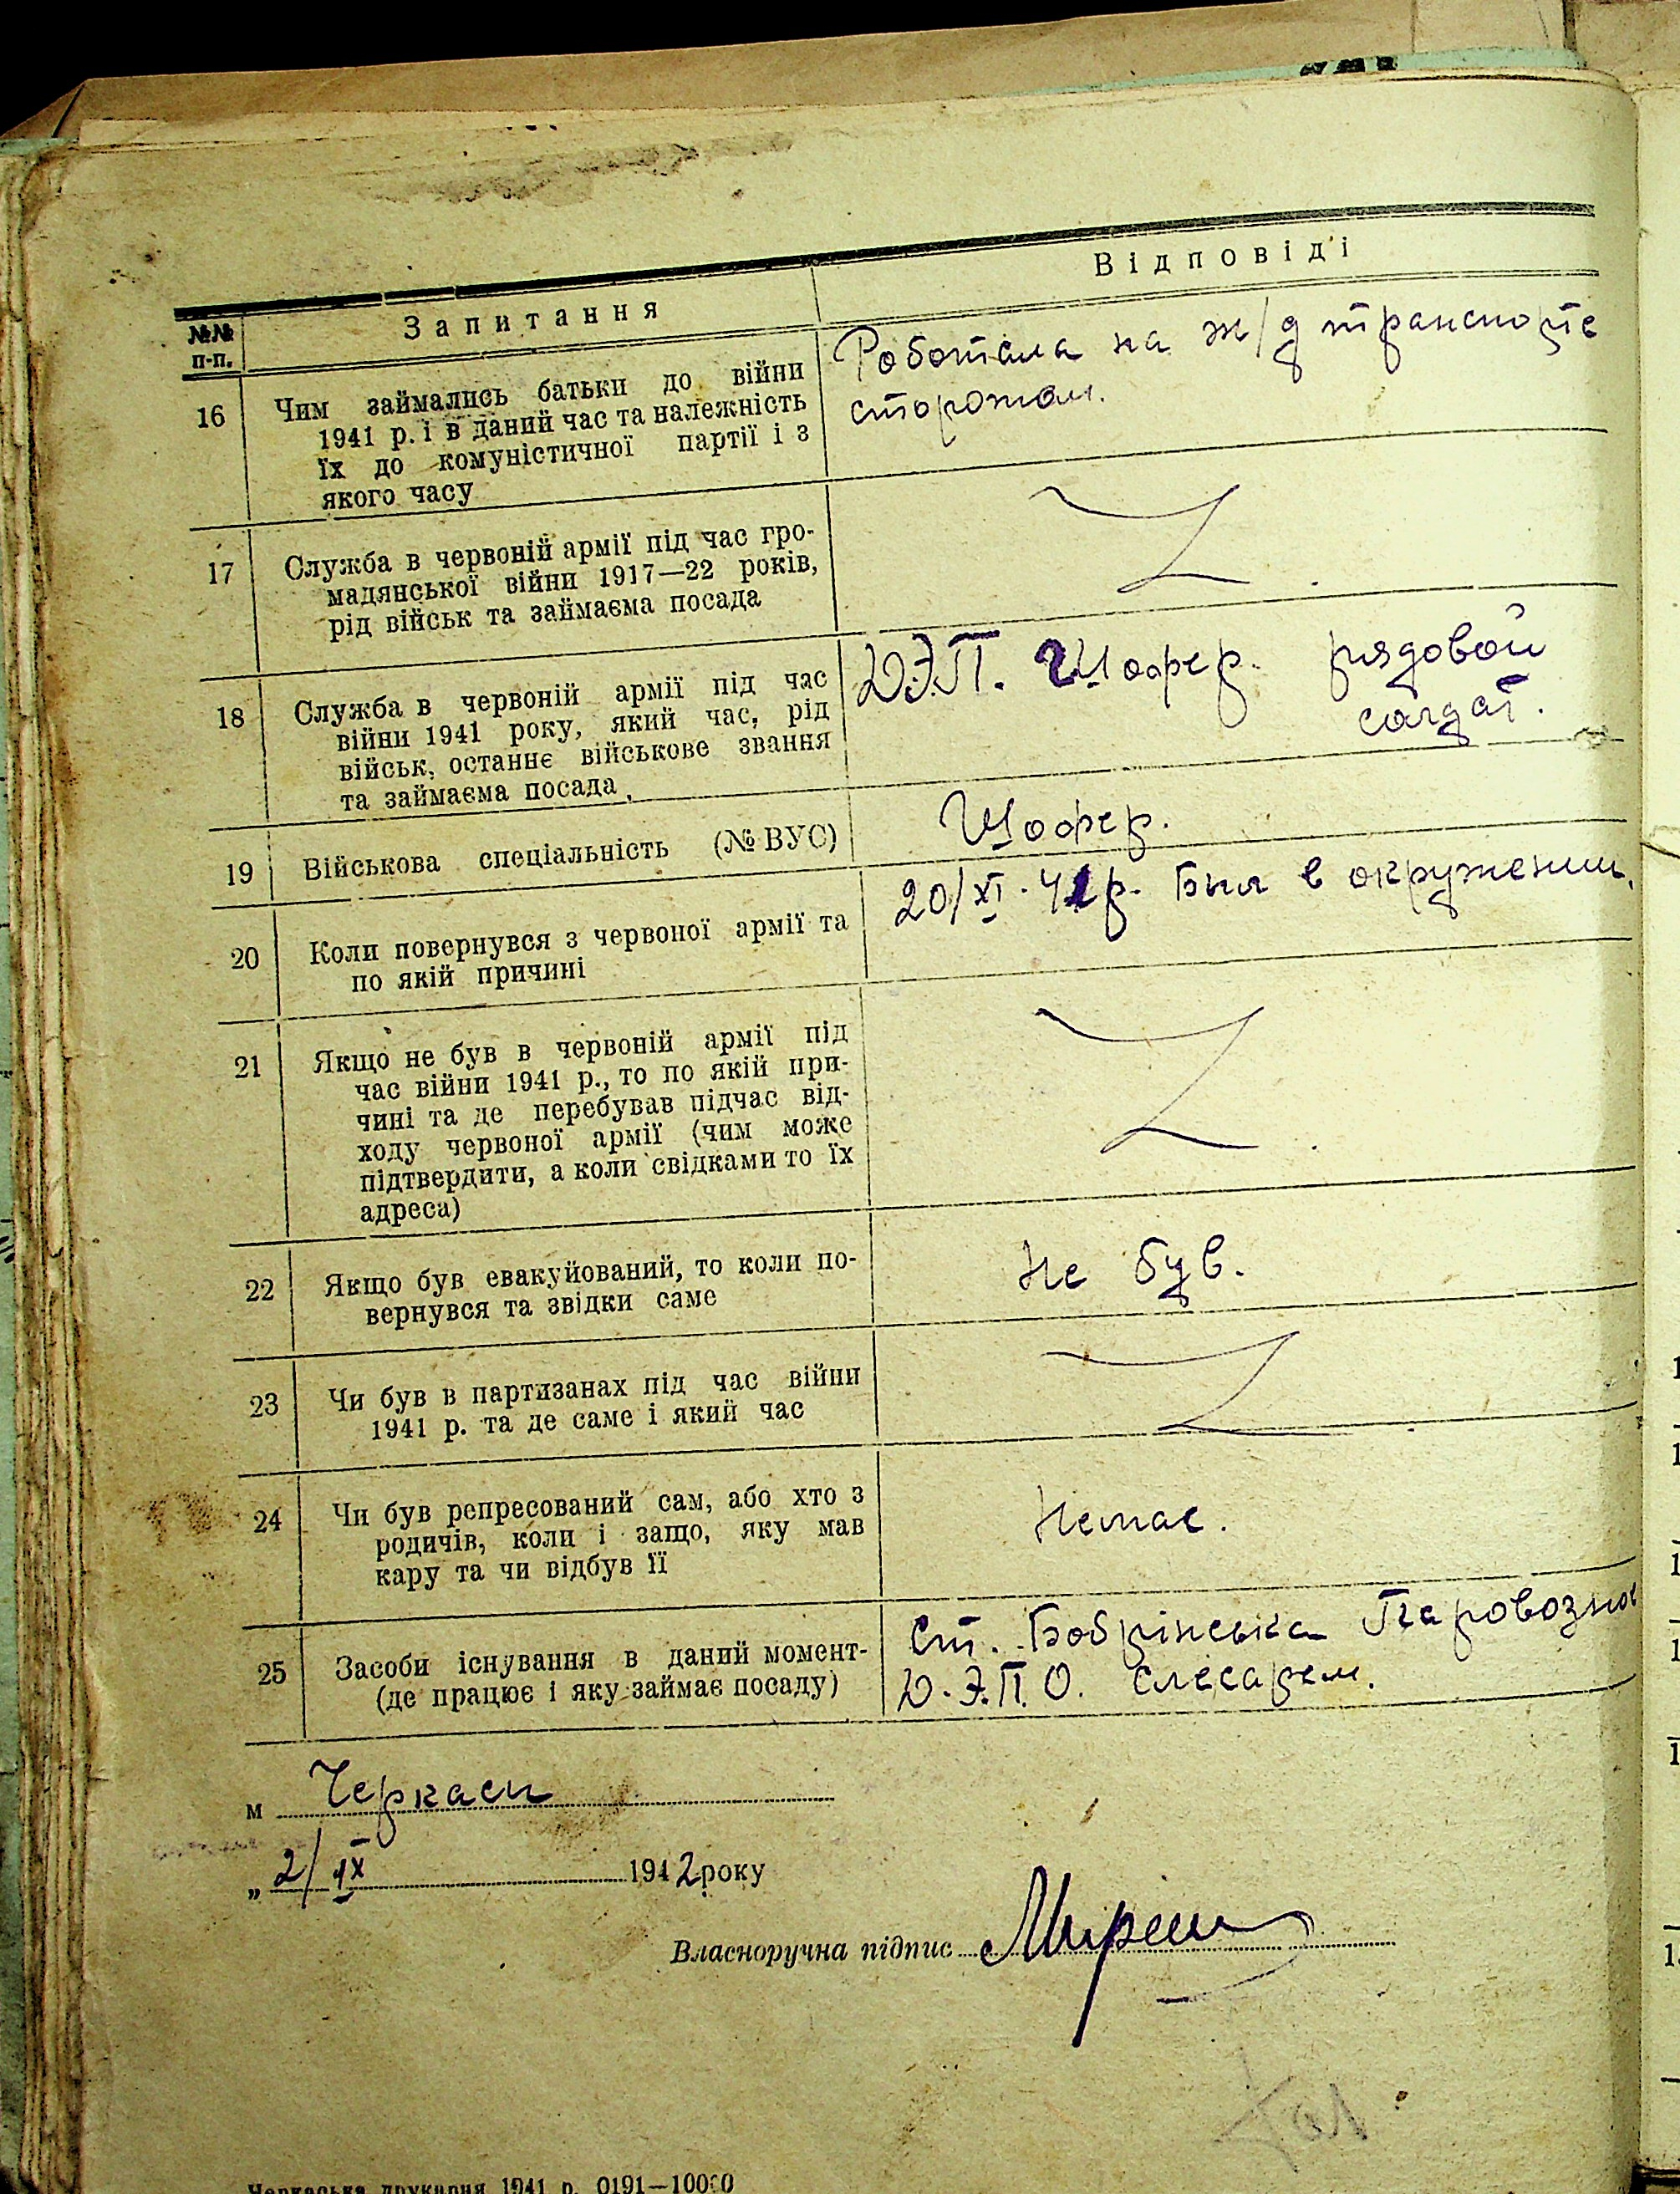 №№ п-п.
Запитання
Відповіді
16
Чим займались батьки до війни
1941 р. і в даний час та належність
їх до комуністичної партії і з
якого часу
Роботала на ж/д транспорте
сторожом.
17
Служба в червоній армії під час гро-
мадянської війни 1917—22 років,
рід військ та займаєма посада
Z.
18
Служба в червоній армії під час
війни 1941 року, який час, рід
військ, останнє військове звання
та займаєма посада
Д.Э.П. Шофер. рядовой
солдат.
19
Військова спеціальність (№ ВУС)
Шофер.
20
Коли повернувся з червоної армії та
по якій причині
20/XI·41р. Был в окружении.
21
Якщо не був в червоній армії під
час війни 1941 р., то по якій при-
чині та де перебував підчас від-
ходу червоної армії (чим може
підтвердити, а коли свідками то їх
адреса)
Z.
22
Якщо був евакуйований, то коли по-
вернувся та звідки саме
Не був.
23
Чи був в партизанах під час війни
1941 р. та де саме і який час
Z.
24
Чи був репресований сам, або хто з
родичів, коли і защо, яку мав
кару та чи відбув її
Немає.
25
Засоби існування в даний момент-
(де працює і яку займає посаду)
Ст. Бобрінська Паровозное
Д.Э.П.О. слесарем.
м Черкаси
„ 2/IX 1942 року
Власноручна підпис
Черкаська друкарня 1941 р. 0191—10000